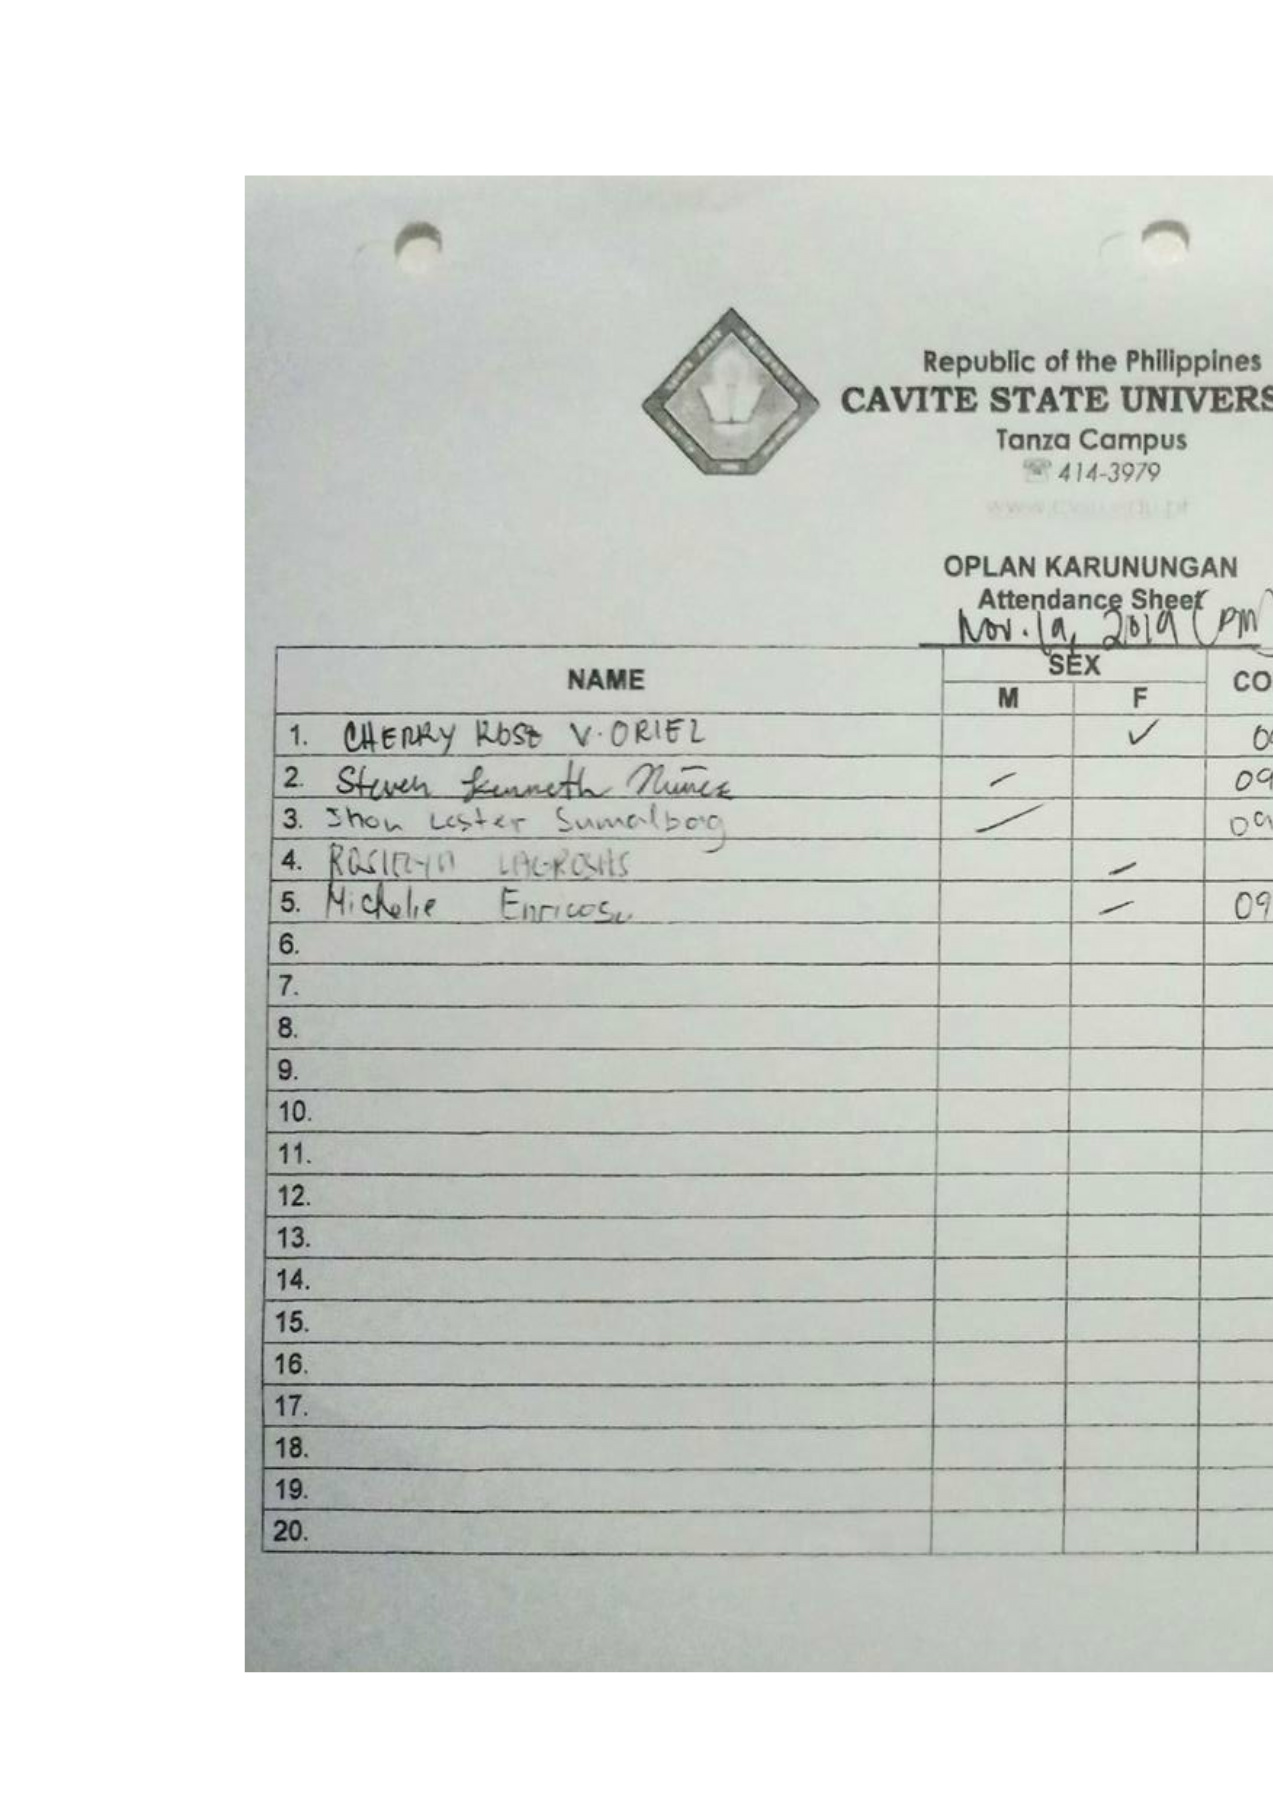 Republic of the Philippines
CAVITE STATE UNIVERS
Tanza Campus
☏ 414-3979
OPLAN KARUNUNGAN
Attendance Sheet
Nov. 19, 2019 (PM)
NAME SEX CO
M F
1. CHERRY ROSE V. ORIEL ✓ 09
2. Steven Kenneth Nuñez 09
3. Jhon Lester Sumalbag 09
4.
5. Michelle 09
6.
7.
8.
9.
10.
11.
12.
13.
14.
15.
16.
17.
18.
19.
20.